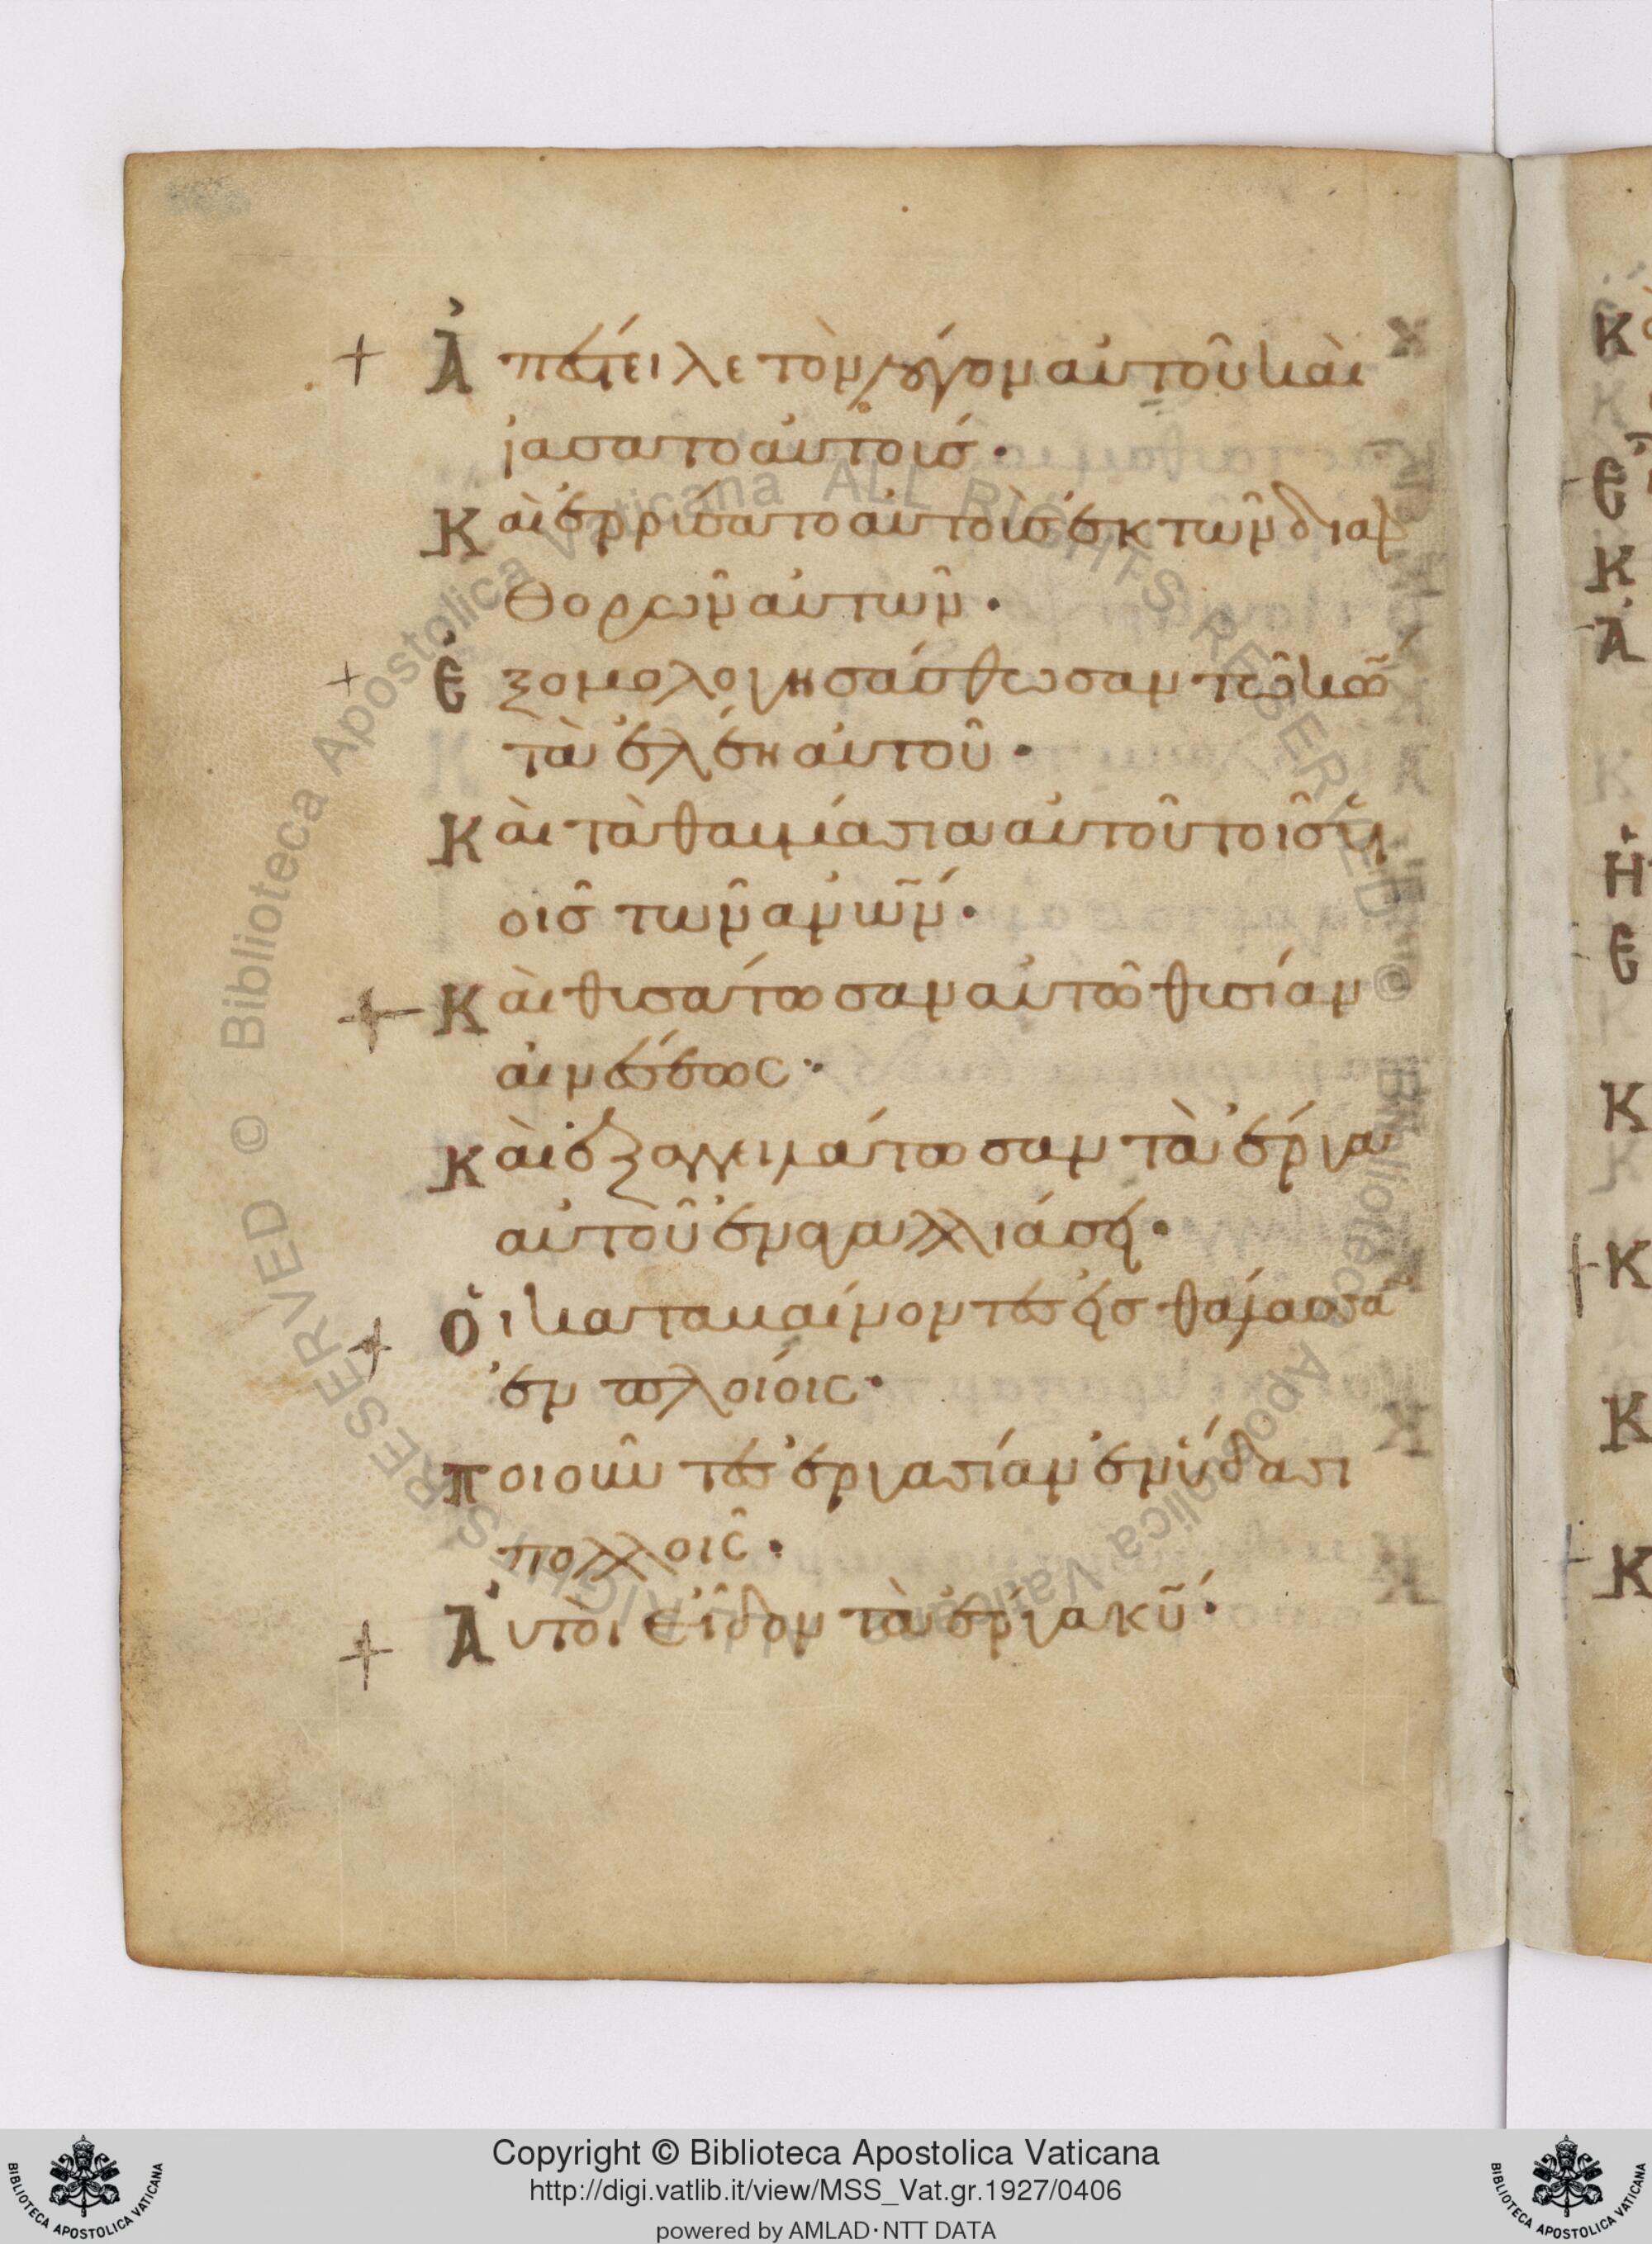 Ἀπέστειλε τὸν λόγον αὐτοῦ καὶ
ἰάσατο αὐτούσ·
Καὶ ἐρρύσατο αὐτοὺσ ἐκ τῶν διαφ
θορῶν αὐτῶν·
Ἐξομολογησάσθωσαν τῶ κω̃
τὰ ἐλέη αὐτοῦ·
Καὶ τὰ θαυμάσια αὐτοῦ τοῖσ υἱ
οῖσ τῶν ανω̃ν·
Καὶ θυσάτωσαν αὐτῶ θυσίαν
αἰνέσεως·
Καὶ ἐξαγγειλάτωσαν τὰ ἔργα
αὐτοῦ ἐν ἀγαλλιάσει·
Οἱ καταβαίνοντεσ εἰσ θάλασσα
ἐν πλοίοις·
Ποιοῦντεσ ἐργασίαν ἐν ὕδασι
πολλοῖς·
Αὐτοὶ εἶδον τὰ ἔργα κῦ·
Κ
Ἐ
Κ
Ἀ
Ἡ
Ε
Κ
Κ
Κ
Κ
Biblioteca Apostolica Vaticana ALL RIGHTS RESERVED © Biblioteca Apostolica Vaticana ALL RIGHTS RESERVED ©
Copyright © Biblioteca Apostolica Vaticana
http://digi.vatlib.it/view/MSS_Vat.gr.1927/0406
powered by AMLAD·NTT DATA
BIBLIOTECA APOSTOLICA VATICANA
BIBLIOTECA APOSTOLICA VATICANA